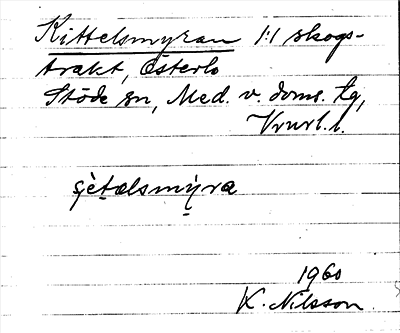 Kittelsmyran 1:1 skogs-
trakt, Österlo
Stöde sn, Med. v. doms. tg,
Vnrl. l.
şètælsmỳra
1960
K. Nilsson